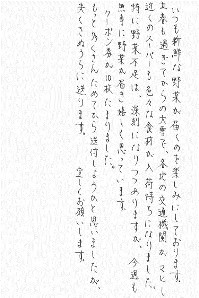 いつも新鮮な野菜が届くのを楽しみにしております。
立春も過ぎてからの大雪で、各地の交通機関がマヒし
近くのスーパーも色々な食材が入荷待ちになりました。
特に野菜不足は、深刻になりつつありますが、今週も
無事に野菜が届き嬉しく思っています。
クーポン券が10枚たまりました。
もっとたくさんためてから送付しようかと思いましたが、
失くさぬうちに送ります。
宜しくお願いします。